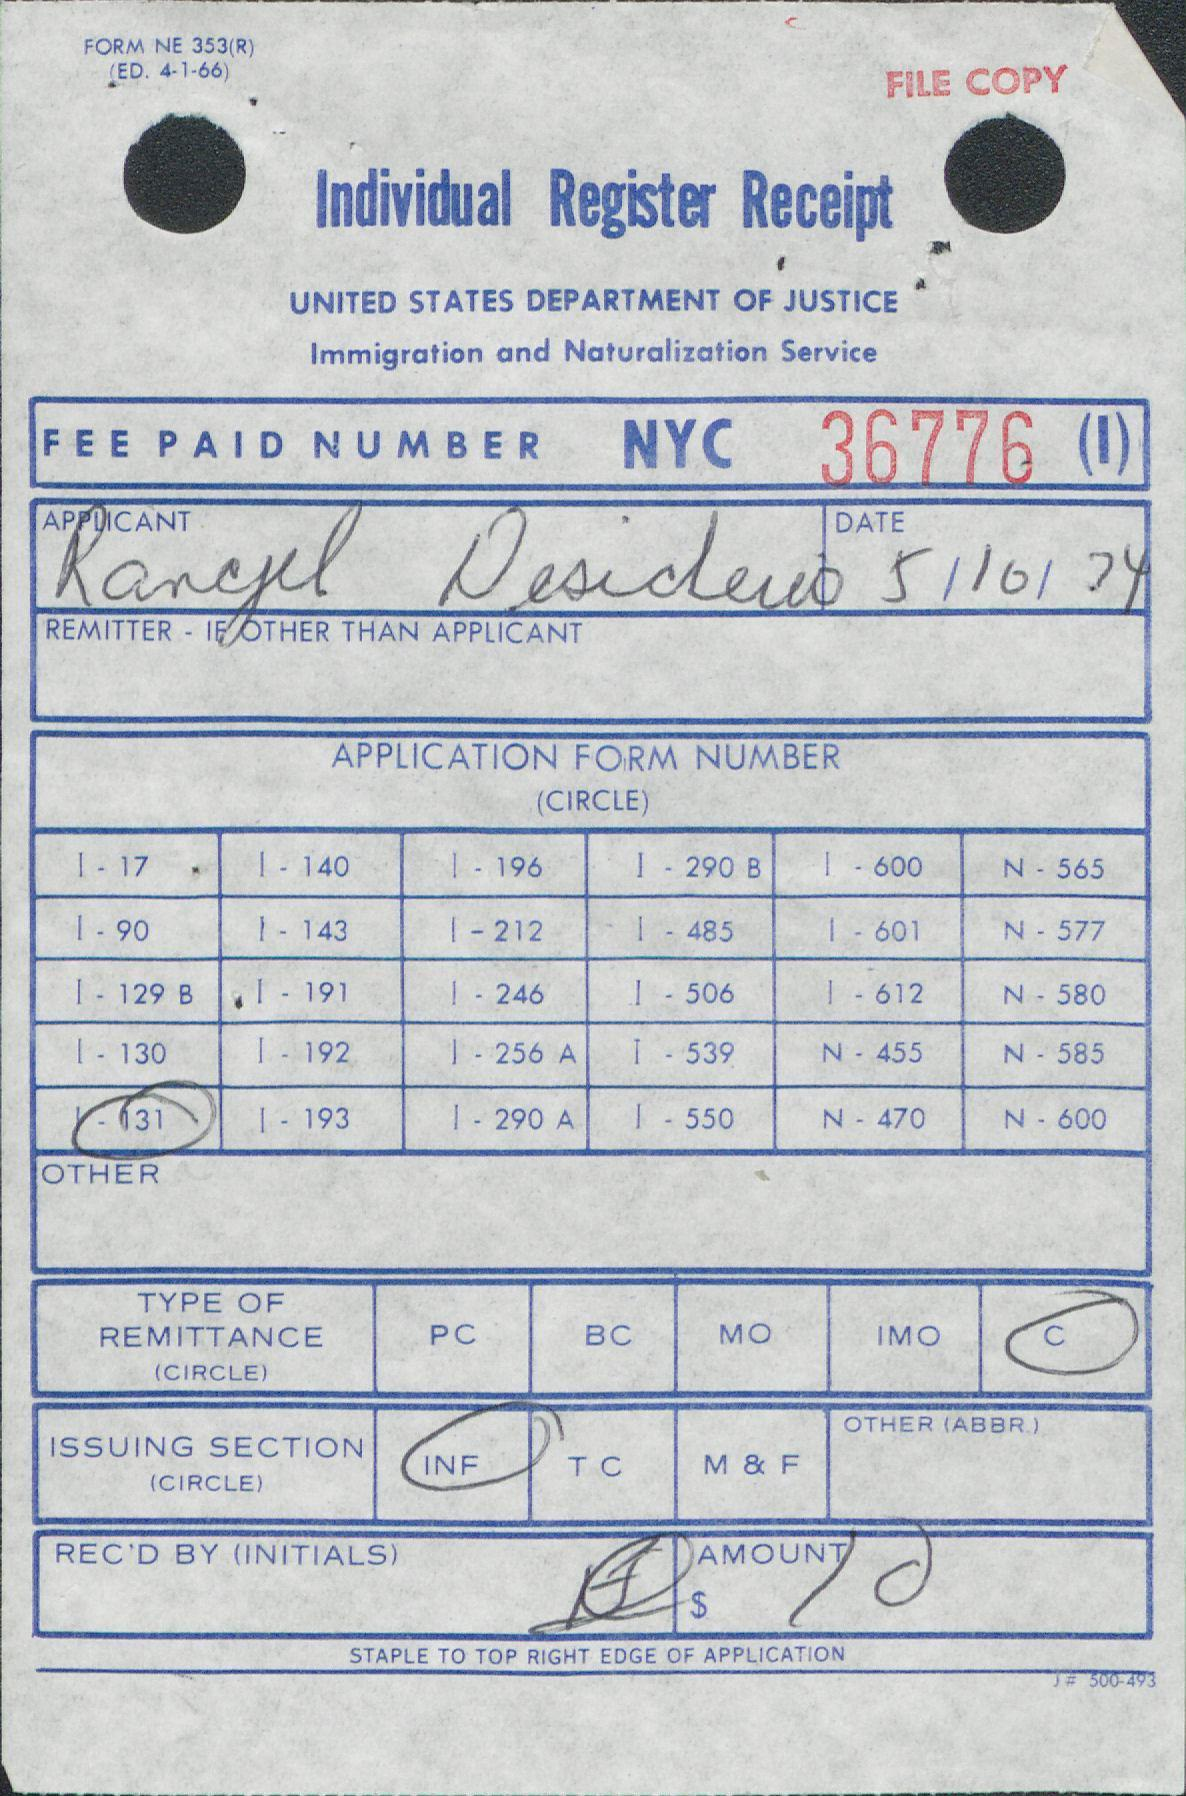 FORM NE 353(R)
(ED. 4-1-66)
FILE COPY
Individual Register Receipt
UNITED STATES DEPARTMENT OF JUSTICE
Immigration and Naturalization Service
FEE PAID NUMBER NYC 36776 (I)
APPLICANT DATE
Rangel Desiderio 5/10/74
REMITTER - IF OTHER THAN APPLICANT
APPLICATION FORM NUMBER
(CIRCLE)
I - 17 I - 140 I - 196 I - 290 B I - 600 N - 565
I - 90 I - 143 I - 212 I - 485 I - 601 N - 577
I - 129 B I - 191 I - 246 I - 506 I - 612 N - 580
I - 130 I - 192 I - 256 A I - 539 N - 455 N - 585
I - 131 I - 193 I - 290 A I - 550 N - 470 N - 600
OTHER
TYPE OF
REMITTANCE PC BC MO IMO C
(CIRCLE)
OTHER (ABBR.)
ISSUING SECTION INF T C M & F
(CIRCLE)
REC'D BY (INITIALS) AMOUNT
$ 10
STAPLE TO TOP RIGHT EDGE OF APPLICATION
J # 500-493